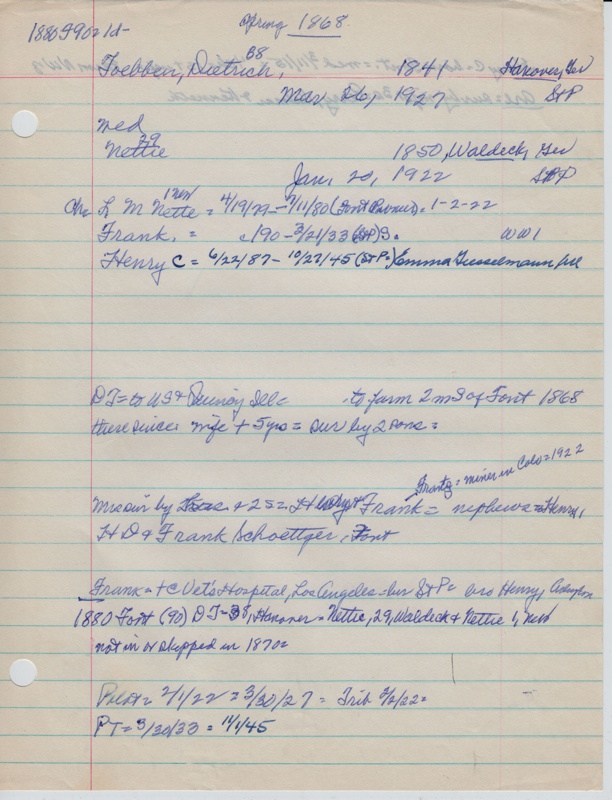 Spring 1868
1880 5902 1d-
Toebben, Dietrich, 38 1841 Hanover, Ger
Mar 26, 1927 St P
med
Nettie 29 1850, Waldeck, Ger
Jan. 20, 1922 St P
Ch= L M Nette = 4/19/79-7/11/80 = 1-2-22
Frank, = /90-3/21/33 (StP) S. WW1
Henry C = 6/22/87- 10/27/45 (St P=) Emma
DT= to US & Quincy Ill= to farm 2 m S of Font 1868
there since: wife + 5 yrs = sur by 2 sons =
Frank = miner in Colo = 1922
Mrs sur by & 2 s = Henry & Frank = nephews = Henry,
H D & Frank Schoettger, Font
Frank = + @ Vet's Hospital, Los Angeles = bur St P = bro Henry,
1880 Font (90) DT-38, Hanover = Nettie, 29, Waldeck & Nettie 1, Neb
not in or skipped in 1870=
Pilot = 2/1/22 = 3/30/27 = Trib 2/2/22=
PT= 3/30/33 = 11/1/45